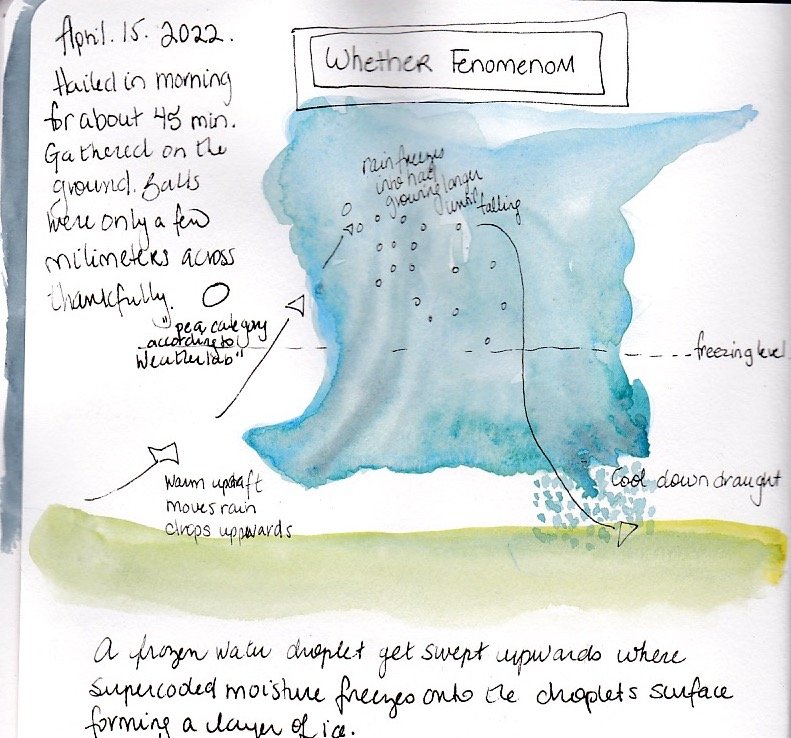 April. 15. 2022.
Hailed in morning
for about 45 min.
Gathered on the
ground. Balls
were only a few
milimeters across
thankfully.
"pea category
according to
Weatherlab"
Whether Fenomenom
rain freezes
into hail
growing larger
until falling
freezing level
Warm updraft
moves rain
drops uppwards
Cool down draught
A frozen water droplet get swept upwards where
supercooled moisture freezes onto the droplets surface
forming a layer of ice.